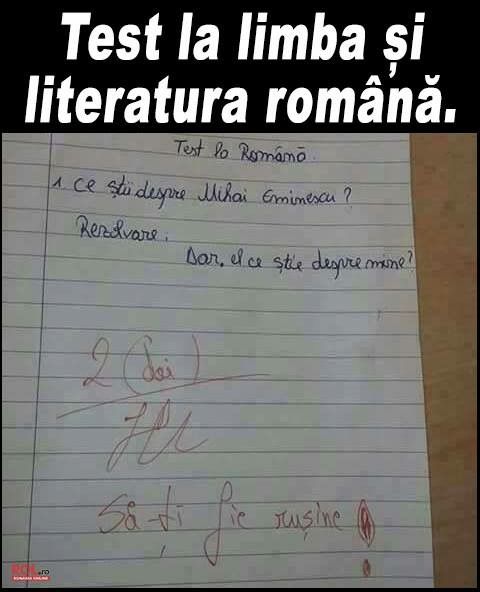 Test la limba și
literatura română.
Test la Română.
1. Ce știi despre Mihai Eminescu?
Rezolvare.
Dar, el ce știe despre mine?
2 (doi)
Să-ți fie rușine!
.ro
ROMANIA ONLINE